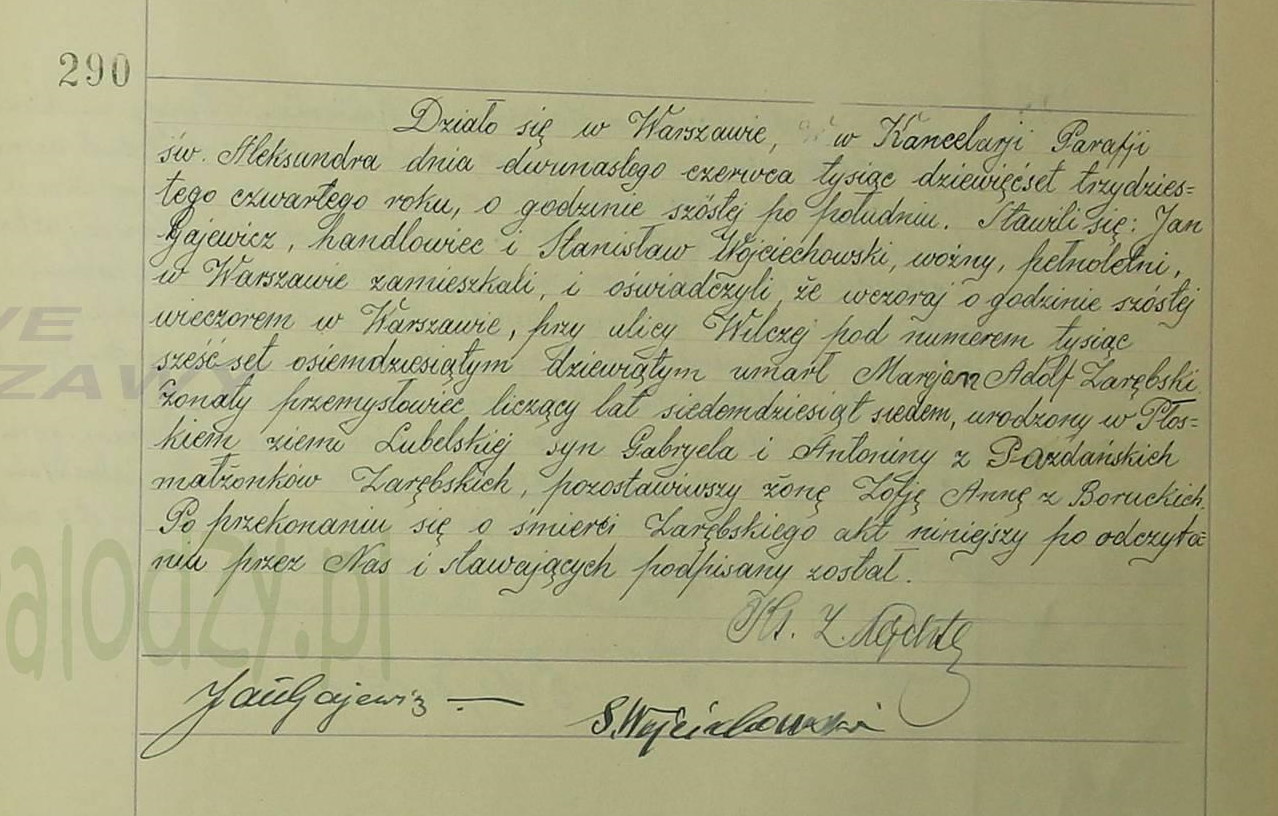 290
Działo się w Warszawie, w Kancelarji Parafji
św. Aleksandra dnia dwunastego czerwca tysiąc dziewięćset trzydzies=
tego czwartego roku, o godzinie szóstej po południu. Stawili się: Jan
Gajewicz, handlowiec i Stanisław Wojciechowski, woźny, pełnoletni,
w Warszawie zamieszkali, i oświadczyli, że wczoraj o godzinie szóstej
wieczorem w Warszawie, przy ulicy Wilczej pod numerem tysiąc
sześćset osiemdziesiątym dziewiątym umarł Marcjan Adolf Zarębski
żonaty przemysłowiec, liczący lat siedemdziesiąt siedem, urodzony w Płos=
kiem ziemi Lubelskiej syn Gabryela i Antoniny z Pazdańskich
małżonków Zarębskich, pozostawiwszy żonę Zofję Annę z Boruckich.
Po przekonaniu się o śmierci Zarębskiego akt niniejszy po odczyta=
niu przez Nas i stawających podpisany został.
Ks. Z.
Jan Gajewicz
S. Wojciechowski
WE
ZAWY
alodzy.pl